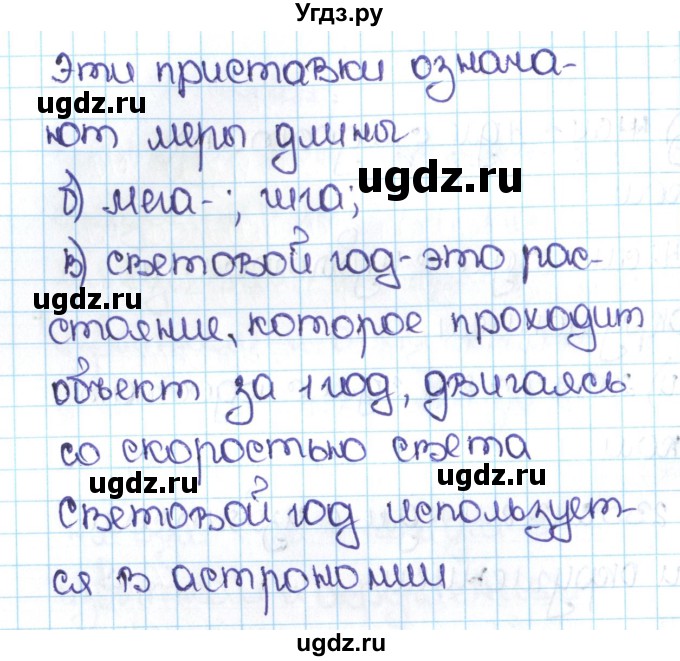 Угдз.ру
Эти приставки означа-
ugdz.ru
ют меры длины
ugdz.ru
б) мега-; гига;
в) световой год-это рас-
ugdz.ru
ugdz.ru
стояние, которое проходит
объект за 1 год, двигаясь
со скоростью света
ugdz.ru
ugdz.ru
Световой год использует-
ся в астрономии
ugdz.ru